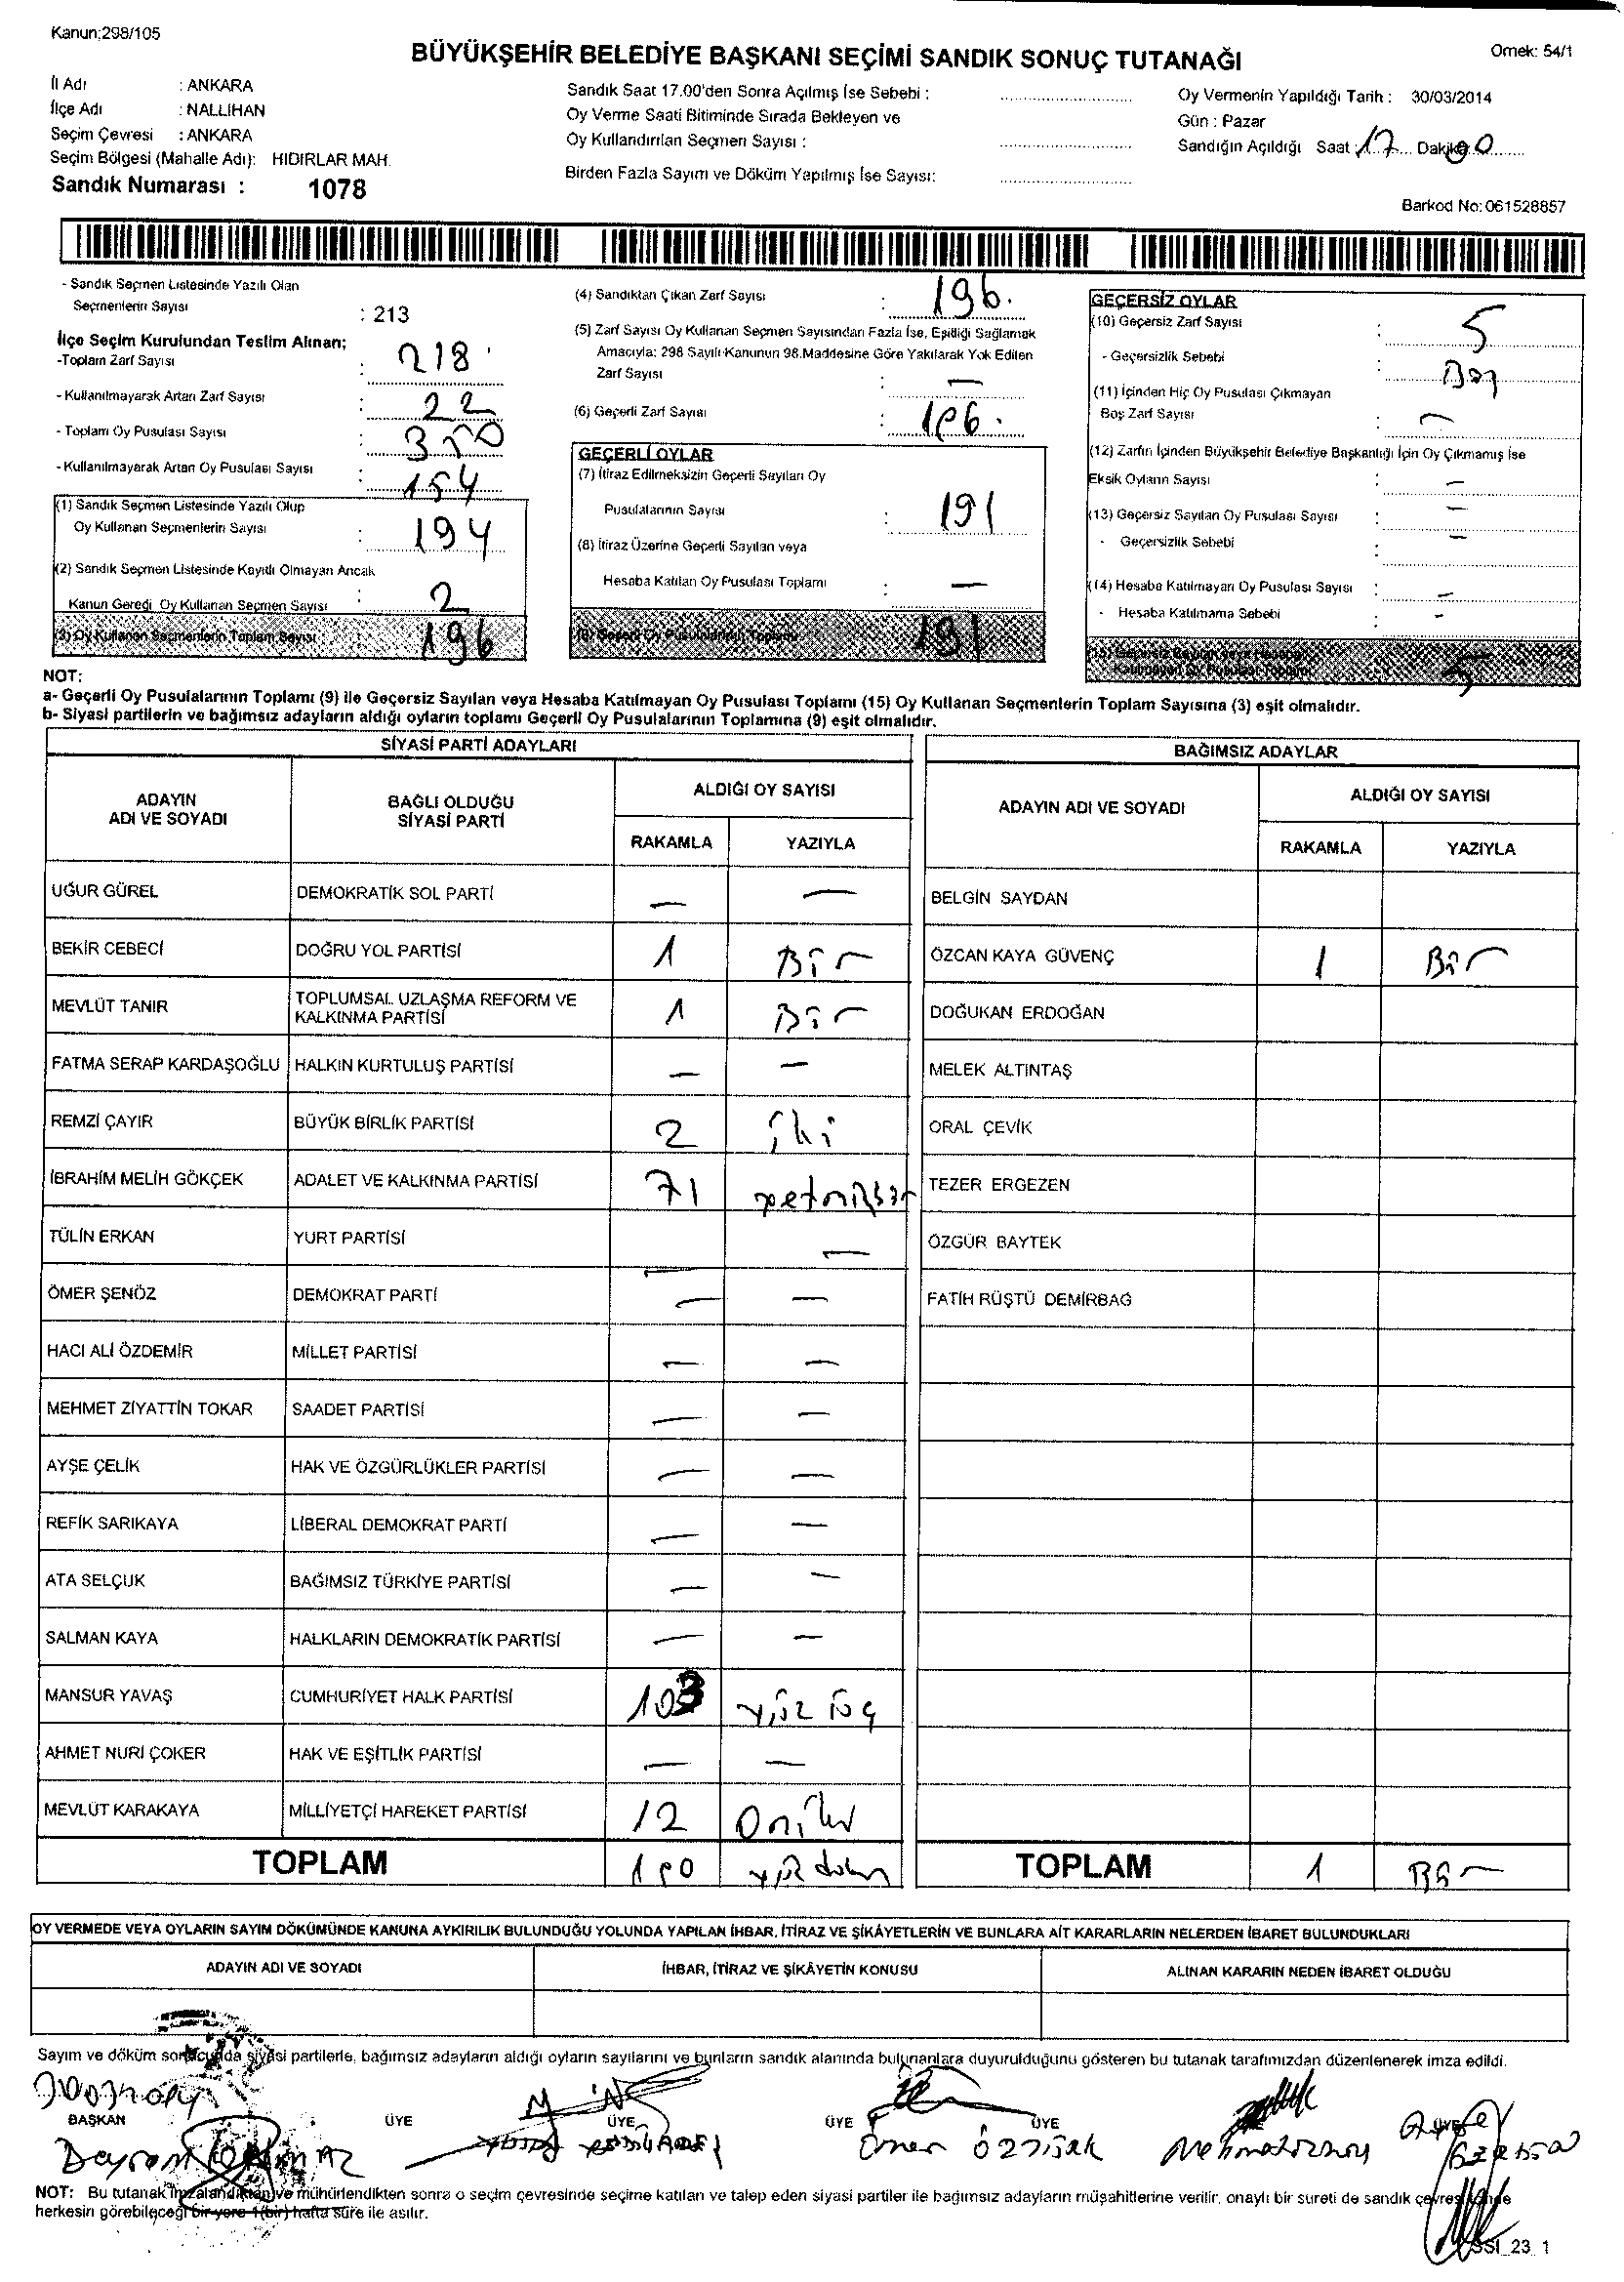 Kanun:298/105
BÜYÜKŞEHİR BELEDİYE BAŞKANI SEÇİMİ SANDIK SONUÇ TUTANAĞI
Örnek: 54/1
İl Adı : ANKARA
İlçe Adı : NALLIHAN
Seçim Çevresi : ANKARA
Seçim Bölgesi (Mahalle Adı): HIDIRLAR MAH.
Sandık Numarası : 1078
Sandık Saat 17.00'den Sonra Açılmış İse Sebebi :
Oy Verme Saati Bitiminde Sırada Bekleyen ve
Oy Kullandırılan Seçmen Sayısı :
Birden Fazla Sayım ve Döküm Yapılmış İse Sayısı:
Oy Vermenin Yapıldığı Tarih : 30/03/2014
Gün : Pazar
Sandığın Açıldığı Saat 17 Dakika
Barkod No: 061528857
- Sandık Seçmen Listesinde Yazılı Olan
Seçmenlerin Sayısı : 213
İlçe Seçim Kurulundan Teslim Alınan;
-Toplam Zarf Sayısı : 218
- Kullanılmayarak Artan Zarf Sayısı : 22
- Toplam Oy Pusulası Sayısı : 350
- Kullanılmayarak Artan Oy Pusulası Sayısı : 154
(1) Sandık Seçmen Listesinde Yazılı Olup
Oy Kullanan Seçmenlerin Sayısı : 194
(2) Sandık Seçmen Listesinde Kayıtlı Olmayan Ancak
Kanun Gereği Oy Kullanan Seçmen Sayısı : 2
(3) Oy Kullanan Seçmenlerin Toplam Sayısı 196
(4) Sandıktan Çıkan Zarf Sayısı : 196.
(5) Zarf Sayısı Oy Kullanan Seçmen Sayısından Fazla İse, Eşitliği Sağlamak
Amacıyla: 298 Sayılı Kanunun 98.Maddesine Göre Yakılarak Yok Edilen
Zarf Sayısı : —
(6) Geçerli Zarf Sayısı :
GEÇERLİ OYLAR
(7) İtiraz Edilmeksizin Geçerli Sayılan Oy
Pusulalarının Sayısı : 191
(8) İtiraz Üzerine Geçerli Sayılan veya
Hesaba Katılan Oy Pusulası Toplamı : —
(9) Geçerli Oy Pusulalarının Toplamı 191
GEÇERSİZ OYLAR
(10) Geçersiz Zarf Sayısı : 5
- Geçersizlik Sebebi :
(11) İçinden Hiç Oy Pusulası Çıkmayan
Boş Zarf Sayısı : —
(12) Zarfın İçinden Büyükşehir Belediye Başkanlığı İçin Oy Çıkmamış İse
Eksik Oyların Sayısı : —
(13) Geçersiz Sayılan Oy Pusulası Sayısı : —
- Geçersizlik Sebebi : —
(14) Hesaba Katılmayan Oy Pusulası Sayısı : —
- Hesaba Katılmama Sebebi : -
(15) Geçersiz Sayılan veya Hesaba
Katılmayan Oy Pusulası Toplamı 5
NOT:
a- Geçerli Oy Pusulalarının Toplamı (9) ile Geçersiz Sayılan veya Hesaba Katılmayan Oy Pusulası Toplamı (15) Oy Kullanan Seçmenlerin Toplam Sayısına (3) eşit olmalıdır.
b- Siyasi partilerin ve bağımsız adayların aldığı oyların toplamı Geçerli Oy Pusulalarının Toplamına (9) eşit olmalıdır.
SİYASİ PARTİ ADAYLARI
ADAYIN ADI VE SOYADI
BAĞLI OLDUĞU SİYASİ PARTİ
ALDIĞI OY SAYISI
RAKAMLA YAZIYLA
UĞUR GÜREL DEMOKRATİK SOL PARTİ — —
BEKİR CEBECİ DOĞRU YOL PARTİSİ 1 Bir
MEVLÜT TANIR TOPLUMSAL UZLAŞMA REFORM VE KALKINMA PARTİSİ 1 Bir
FATMA SERAP KARDAŞOĞLU HALKIN KURTULUŞ PARTİSİ — —
REMZİ ÇAYIR BÜYÜK BİRLİK PARTİSİ 2 iki
İBRAHİM MELİH GÖKÇEK ADALET VE KALKINMA PARTİSİ 71 yetmişbir
TÜLİN ERKAN YURT PARTİSİ — —
ÖMER ŞENÖZ DEMOKRAT PARTİ — —
HACI ALİ ÖZDEMİR MİLLET PARTİSİ — —
MEHMET ZİYATTİN TOKAR SAADET PARTİSİ — —
AYŞE ÇELİK HAK VE ÖZGÜRLÜKLER PARTİSİ — —
REFİK SARIKAYA LİBERAL DEMOKRAT PARTİ — —
ATA SELÇUK BAĞIMSIZ TÜRKİYE PARTİSİ — —
SALMAN KAYA HALKLARIN DEMOKRATİK PARTİSİ — —
MANSUR YAVAŞ CUMHURİYET HALK PARTİSİ 103 yüz üç
AHMET NURİ ÇOKER HAK VE EŞİTLİK PARTİSİ — —
MEVLÜT KARAKAYA MİLLİYETÇİ HAREKET PARTİSİ 12 Oniki
TOPLAM 190
BAĞIMSIZ ADAYLAR
ADAYIN ADI VE SOYADI
ALDIĞI OY SAYISI
RAKAMLA YAZIYLA
BELGİN SAYDAN
ÖZCAN KAYA GÜVENÇ 1 Bir
DOĞUKAN ERDOĞAN
MELEK ALTINTAŞ
ORAL ÇEVİK
TEZER ERGEZEN
ÖZGÜR BAYTEK
FATİH RÜŞTÜ DEMİRBAĞ
TOPLAM 1 Bir
OY VERMEDE VEYA OYLARIN SAYIM DÖKÜMÜNDE KANUNA AYKIRILIK BULUNDUĞU YOLUNDA YAPILAN İHBAR, İTİRAZ VE ŞİKÂYETLERİN VE BUNLARA AİT KARARLARIN NELERDEN İBARET BULUNDUKLARI
ADAYIN ADI VE SOYADI
İHBAR, İTİRAZ VE ŞİKÂYETİN KONUSU
ALINAN KARARIN NEDEN İBARET OLDUĞU
Sayım ve döküm sonucunda siyasi partilerle, bağımsız adayların aldığı oyların sayılarını ve bunların sandık alanında bulunanlara duyurulduğunu gösteren bu tutanak tarafımızdan düzenlenerek imza edildi.
BAŞKAN ÜYE ÜYE ÜYE ÜYE ÜYE
Bayram
Ömer
NOT: Bu tutanak imzalandıktan ve mühürlendikten sonra o seçim çevresinde seçime katılan ve talep eden siyasi partiler ile bağımsız adayların müşahitlerine verilir, onaylı bir sureti de sandık çevresinde
herkesin görebileceği bir yere 1(bir) hafta süre ile asılır.
SSI_23_1